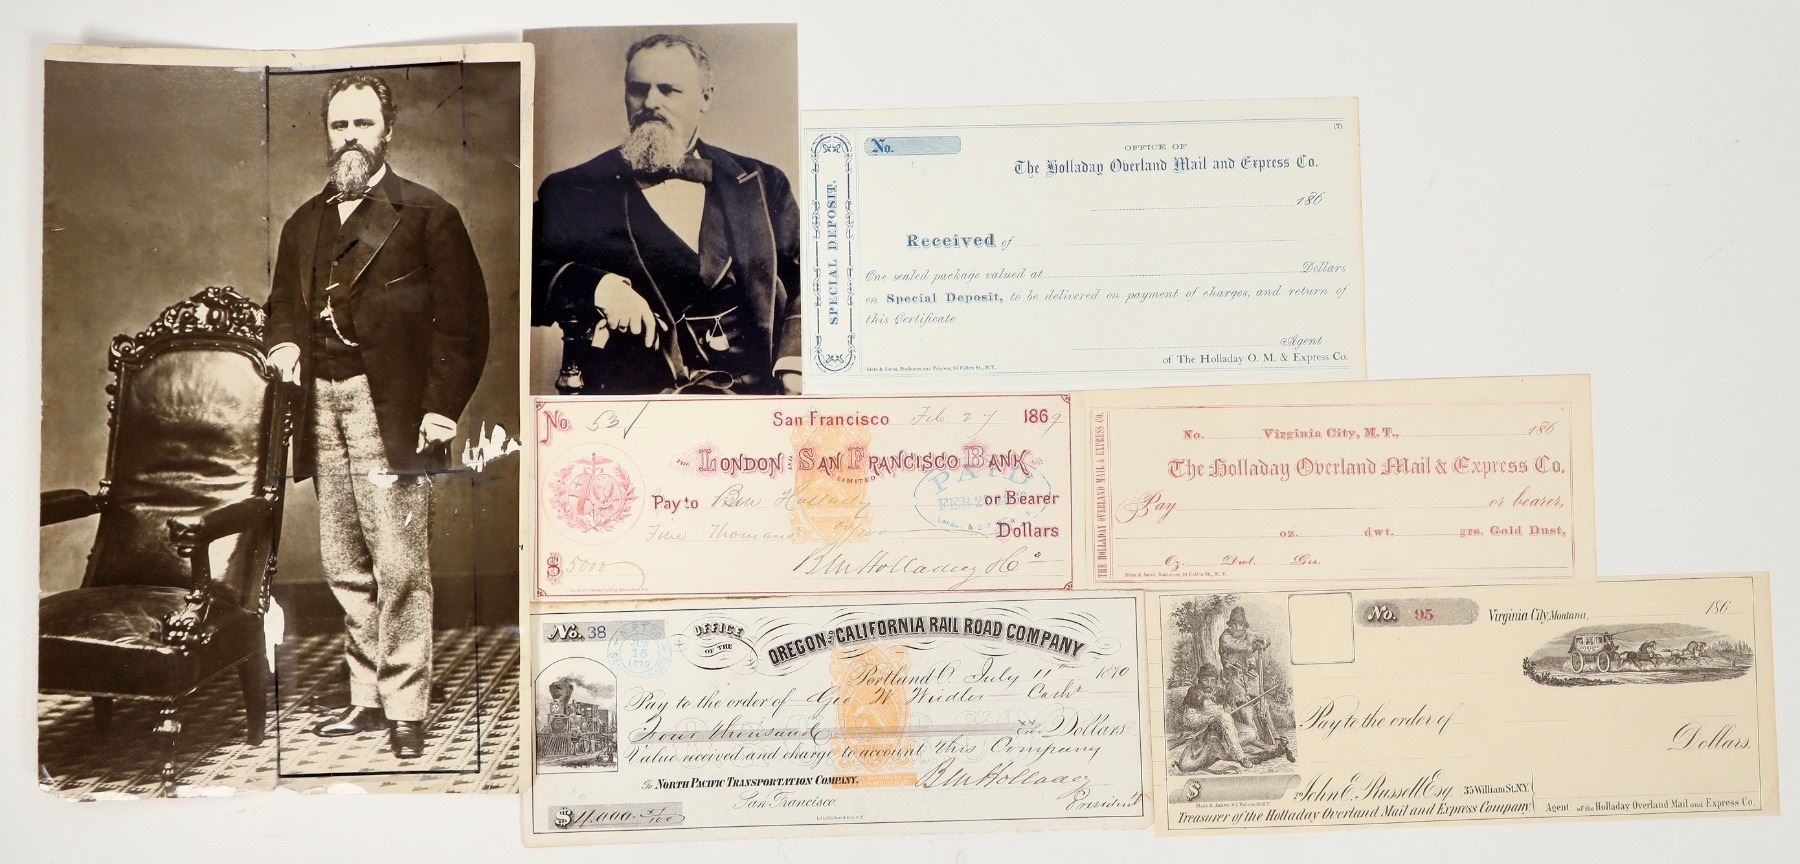 (7)
No.
OFFICE OF
The Holladay Overland Mail and Express Co.
186
SPECIAL DEPOSIT.
Received of
One sealed package valued at Dollars
on Special Deposit, to be delivered on payment of charges, and return of
this Certificate
Agent
of The Holladay O. M. & Express Co.
Slote & Janes, Stationers and Printers, 93 Fulton St., N.Y.
No. 53 San Francisco Feb 27 1869
THE LONDON AND SAN FRANCISCO BANK
LIMITED
PAID
Pay to Ben Holladay or Bearer
Five Thousand 00/100 Dollars
$ 5000 Ben Holladay
No. Virginia City, M. T., 186
The Holladay Overland Mail & Express Co.
THE HOLLADAY OVERLAND MAIL & EXPRESS CO.
Pay or bearer,
oz. dwt. grs. Gold Dust,
Oz. Dwt. Grs.
Slote & Janes, Stationers, 93 Fulton St., N.Y.
No. 38
15
1870
OFFICE
OF THE
OREGON AND CALIFORNIA RAIL ROAD COMPANY
Portland O. July 11th 1870
Pay to the order of Geo W. Weidler Cashr
Four thousand xx/100 Dollars
Value received and charge to account this Company
To NORTH PACIFIC TRANSPORTATION COMPANY. Ben Holladay
San Francisco. President
$ 4,000 xx/100
No. 95 Virginia City, Montana, 186
Pay to the order of
Dollars.
$
To John E. Russell Esq 35 William St. N.Y.
Treasurer of the Holladay Overland Mail and Express Company. Agent of the Holladay Overland Mail and Express Co.